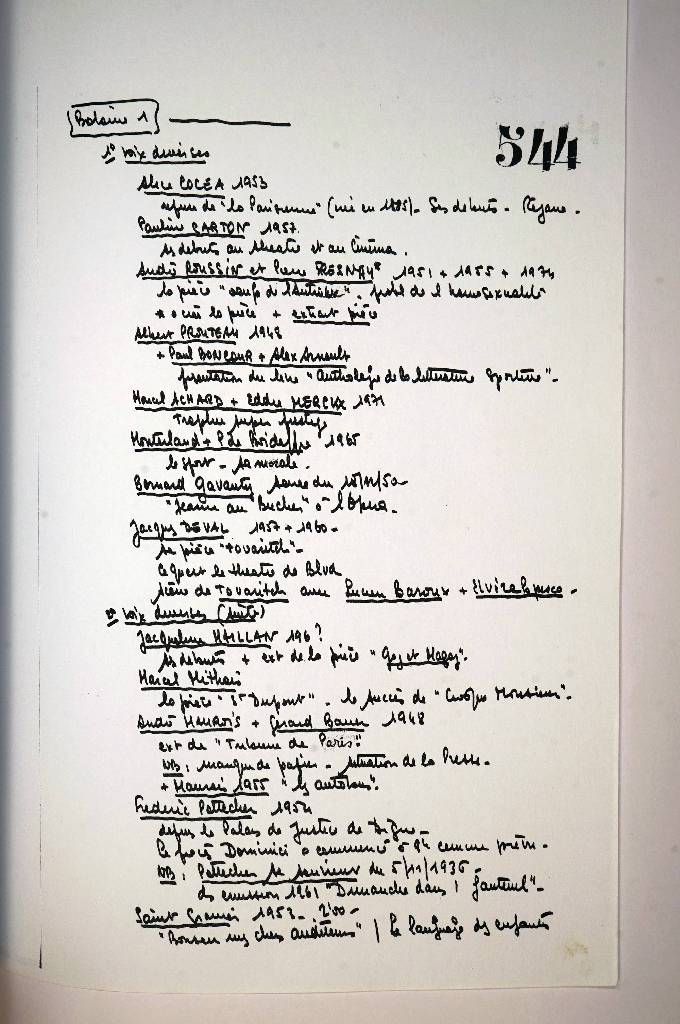 Bobine 1
544
1° voix diverses
Alice COCEA 1953
de "la Parisienne" (né en 1885) - Ses débuts - Réjane.
Pauline CARTON 1957.
ses débuts au théâtre et au Cinéma.
André ROUSSIN et Pierre FRESNAY 1951 + 1955 + 1974
la pièce "oeufs de l'Autruche", probl de l'homosexualité
la pièce + extrait pièce
Albert PROUTEAU 1948
+ Paul BONCOUR + Alex Arnault
présentation du livre "Anthologie de la littérature Sportive".
Marcel ACHARD + Eddie MERCKX 1971
Trophée super prestige
Monterland + P de Boisdeffre 1965
le sport - sa morale.
Bernard Gavanty du 18/11/50
"Jeanne au Bucher" à l'Opéra.
Jacques DEVAL 1957 + 1960 -
sa pièce "tovaritch" -
ce qu'est le théatre de Blvd
scène de Tovaritch avec Lucien Baroux + Elvire Popesco -
2° voix diverses (suite)
Jacqueline MAILLAN 196 ?
ses débuts + ext de la pièce "Gog et Magog".
Marcel Mithois
la pièce " Dupont" - le succès de "Croque Monsieur".
André MAUROIS + Gérard Bauer 1948
ext de "Tribune de Paris"
NB : manque de papier - situation de la Presse.
+ Maurois 1955 "
Frédéric Pottecher 1954
depuis le Palais de Justice de Digne -
Le procès Dominici a commencé à 9h comme prévu -
NB : Pottecher se souvient du 5/11/1936 -
ds emission 1961 "Dimanche dans 1 fauteuil" -
Saint Granier 1953 - 2'00 -
"Bonsoir mes chers auditeurs" / Le langage des enfants